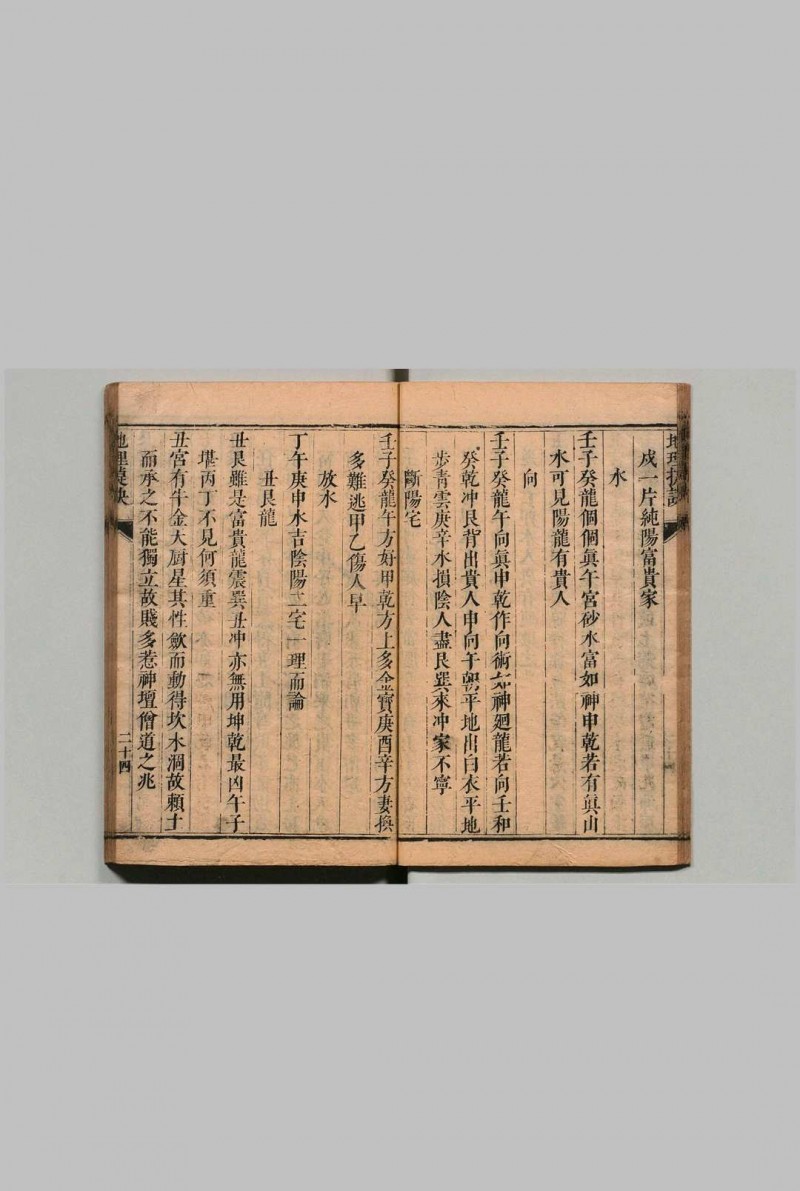 成一片純陽富貴家
水
壬子癸龍個個眞午宮砂水富如神申乾若有眞山
水可見陽龍有貴人
向
壬子癸龍午向眞申乾作向術如神廻龍若向壬和
癸乾冲艮背出貴人申向午朝平地出白衣平地
步靑雲庚辛水損陰人盡艮巽來冲家不寧
斷陽宅
壬子癸龍午方好甲乾方上多金寳庚酉辛方妻換
多難逃甲乙傷人早
放水
丁午庚申水吉陰陽二宅一理而論
丑艮龍
丑艮雖是富貴龍震巽丑冲亦無用坤乾最凶午子
堪丙丁不見何須重
丑宮有牛金天厨星其性歛而動得坎水潤故賴土
而承之不能獨立故賤多惹神壇僧道之兆
二十四